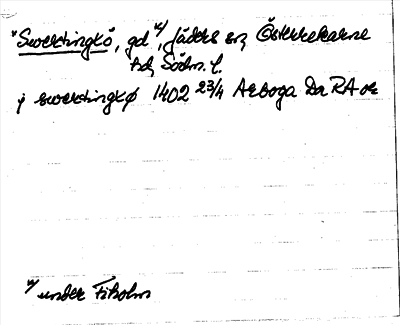 *Swerkingkö, gd x/, Jäders sn, Österrekarne
hd, Södm. l.
j swerkingkø 1402 23/4 Arboga Da RA or
x/ under Fiholm